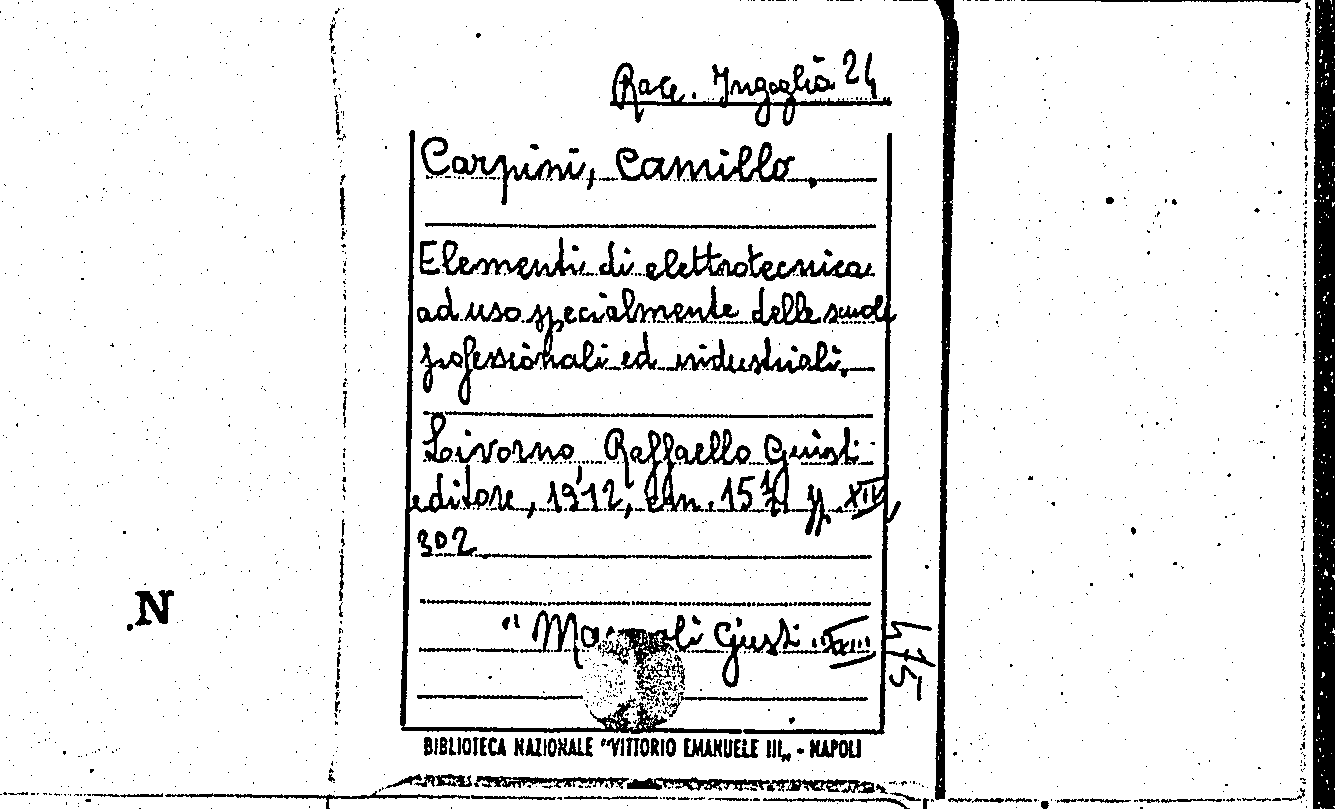 Racc. Ingoglia 24
Carpini, Camillo.
Elementi di elettrotecnica
ad uso specialmente delle scuole
professionali ed industriali.
Livorno, Raffaello Giusti
editore, 1912, cm. 15½ pp. XII,
302
"Manuali Giusti
475
.N
BIBLIOTECA NAZIONALE "VITTORIO EMANUELE III„ - NAPOLI